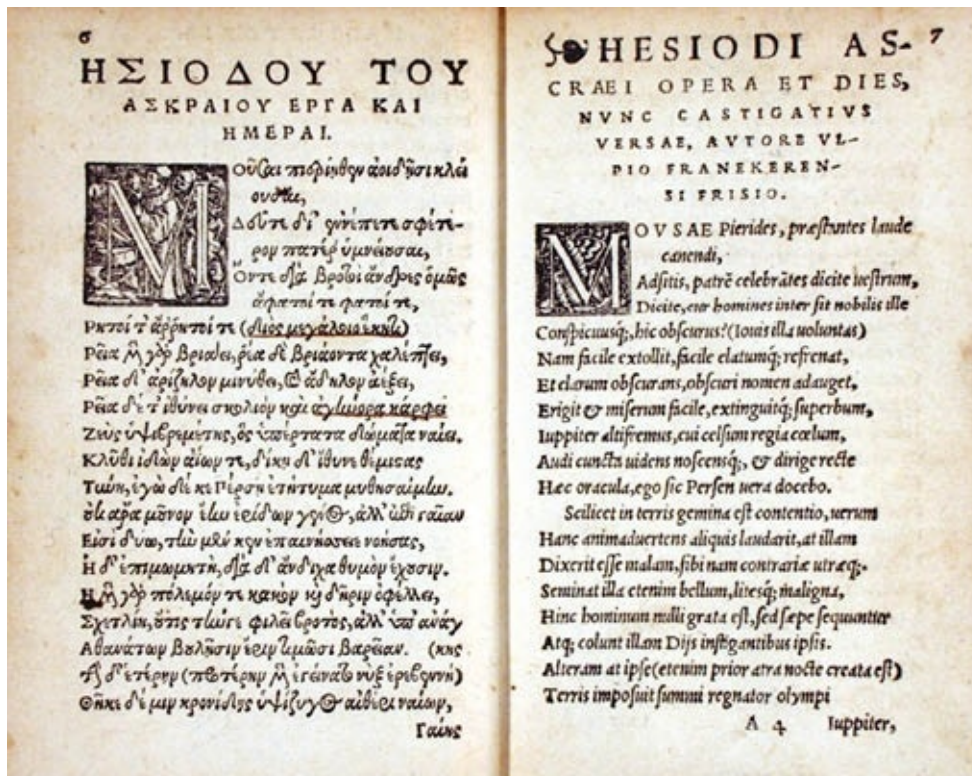 6
ΗΣΙΟΔΟΥ ΤΟΥ
ΑΣΚΡΑΙΟΥ ΕΡΓΑ ΚΑΙ
ΗΜΕΡΑΙ.
ΜΟῦσαι πιερίηθεν ἀοιδῇσι κλεί
ουσαι,
Δεῦτε δι' ἐννέπετε σφέτε-
ρον πατέρ' ὑμνείουσαι,
Ὅντε διὰ βροτοὶ ἄνδρες ὁμῶς
ἄφατοί τε φατοί τε,
Ρητοί τ' ἄῤῥητοί τε (διὸς μεγάλοιο ἕκητι)
Ρεῖα μὲν γὰρ βριάει, ῥέα δὲ βριάοντα χαλέπτει,
Ρεῖα δ' ἀρίζηλον μινύθει, καὶ ἄδηλον ἀέξει,
Ρεῖα δέ τ' ἰθύνει σκολιὸν καὶ ἀγήνορα κάρφει
Ζεὺς ὑψιβρεμέτης, ὃς ὑπέρτατα δώματα ναίει.
Κλῦθι ἰδὼν ἀΐων τε, δίκῃ δ' ἴθυνε θέμιστας
Τύνη, ἐγὼ δέ κε Πέρσῃ ἐτήτυμα μυθησαίμην.
Οὐκ ἄρα μοῦνον ἔην ἐρίδων γένος, ἀλλ' ἐπὶ γαῖαν
Εἰσὶ δύω, τὴν μέν κεν ἐπαινήσειε νοήσας,
Ἡ δ' ἐπιμωμητή, διὰ δ' ἄνδιχα θυμὸν ἔχουσιν.
Ἡ μὲν γὰρ πόλεμόν τε κακὸν καὶ δῆριν ὀφέλλει,
Σχετλίη, οὔτις τήνγε φιλεῖ βροτὸς, ἀλλ' ὑπ' ἀνάγ
Αθανάτων βουλῇσιν ἔριν τιμῶσι βαρεῖαν. (κης
Τὴν δ' ἑτέρην (προτέρην μὲν ἐγείνατο νὺξ ἐρεβεννὴ)
Θῆκε δέ μιν κρονίδης ὑψίζυγος αἰθέρι ναίων,
Γαίης
HESIODI AS- 7
CRAEI OPERA ET DIES,
NVNC CASTIGATIVS
VERSAE, AVTORE VL-
PIO FRANEKEREN-
SI FRISIO.
MOVSAE Pierides, præstantes laude
canendi,
Adsitis, patrē celebrātes dicite uestrum,
Dicite, cur homines inter sit nobilis ille
Conspicuusq;, hic obscurus? (Iouis illa uoluntas)
Nam facile extollit, facile elatumq; refrenat,
Et clarum obscurans, obscuri nomen adauget,
Erigit & miserum facile, extinguitq; superbum,
Iuppiter altifremus, cui celsum regia cœlum,
Audi cuncta uidens noscensq;, & dirige recte
Hæc oracula, ego sic Persen uera docebo.
Scilicet in terris gemina est contentio, uerum
Hanc animaduertens aliquis laudarit, at illam
Dixerit esse malam, sibi nam contrariæ utræq;.
Seminat illa etenim bellum, litesq; maligna,
Hinc hominum nulli grata est, sed sæpe sequuntur
Atq; colunt illam Dijs instigantibus ipsis.
Alteram at ipse (etenim prior atra nocte creata est)
Terris imposuit summi regnator olympi
A 4 Iuppiter,